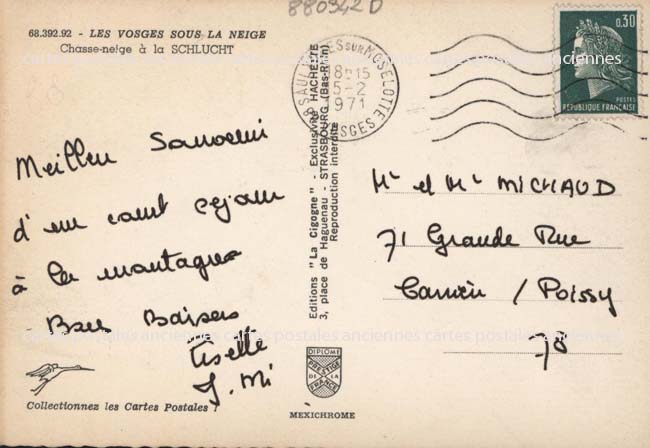 880342D
68.392.92 - LES VOSGES SOUS LA NEIGE
Chasse-neige à la SCHLUCHT
Meilleu Souvenir
d'un court sejour
à la montagne
Bons Baisers
Lisette
J. Mi
Collectionnez les Cartes Postales !
Editions "La Cigogne" - Exclusivité HACHETTE
3, place de Haguenau - STRASBOURG (Bas-Rhin)
Reproduction interdite
SUR MOSELOTTE
18H15
5-2
1971
VOSGES
0,30
POSTES
REPUBLIQUE FRANÇAISE
Mr et Me MICHAUD
71 Grande Rue
/ Poissy
78
DIPLOME
PRESTIGE
DE LA
FRANCE
MEXICHROME
cartes postales anciennes cartes postales anciennes cartes postales anciennes